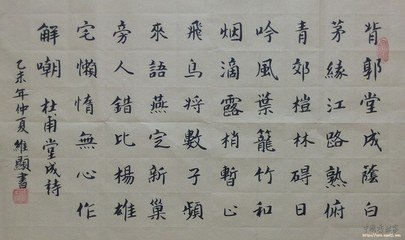 背郭堂成蔭白
茅緣江路熟俯
青郊榿林礙日
吟風葉籠竹和
烟滴露梢暫止
飛烏將數子頻
來語燕定新巢
旁人錯比楊雄
宅懶惰無心作
解嘲 杜甫堂成詩
乙未年仲夏維顯書